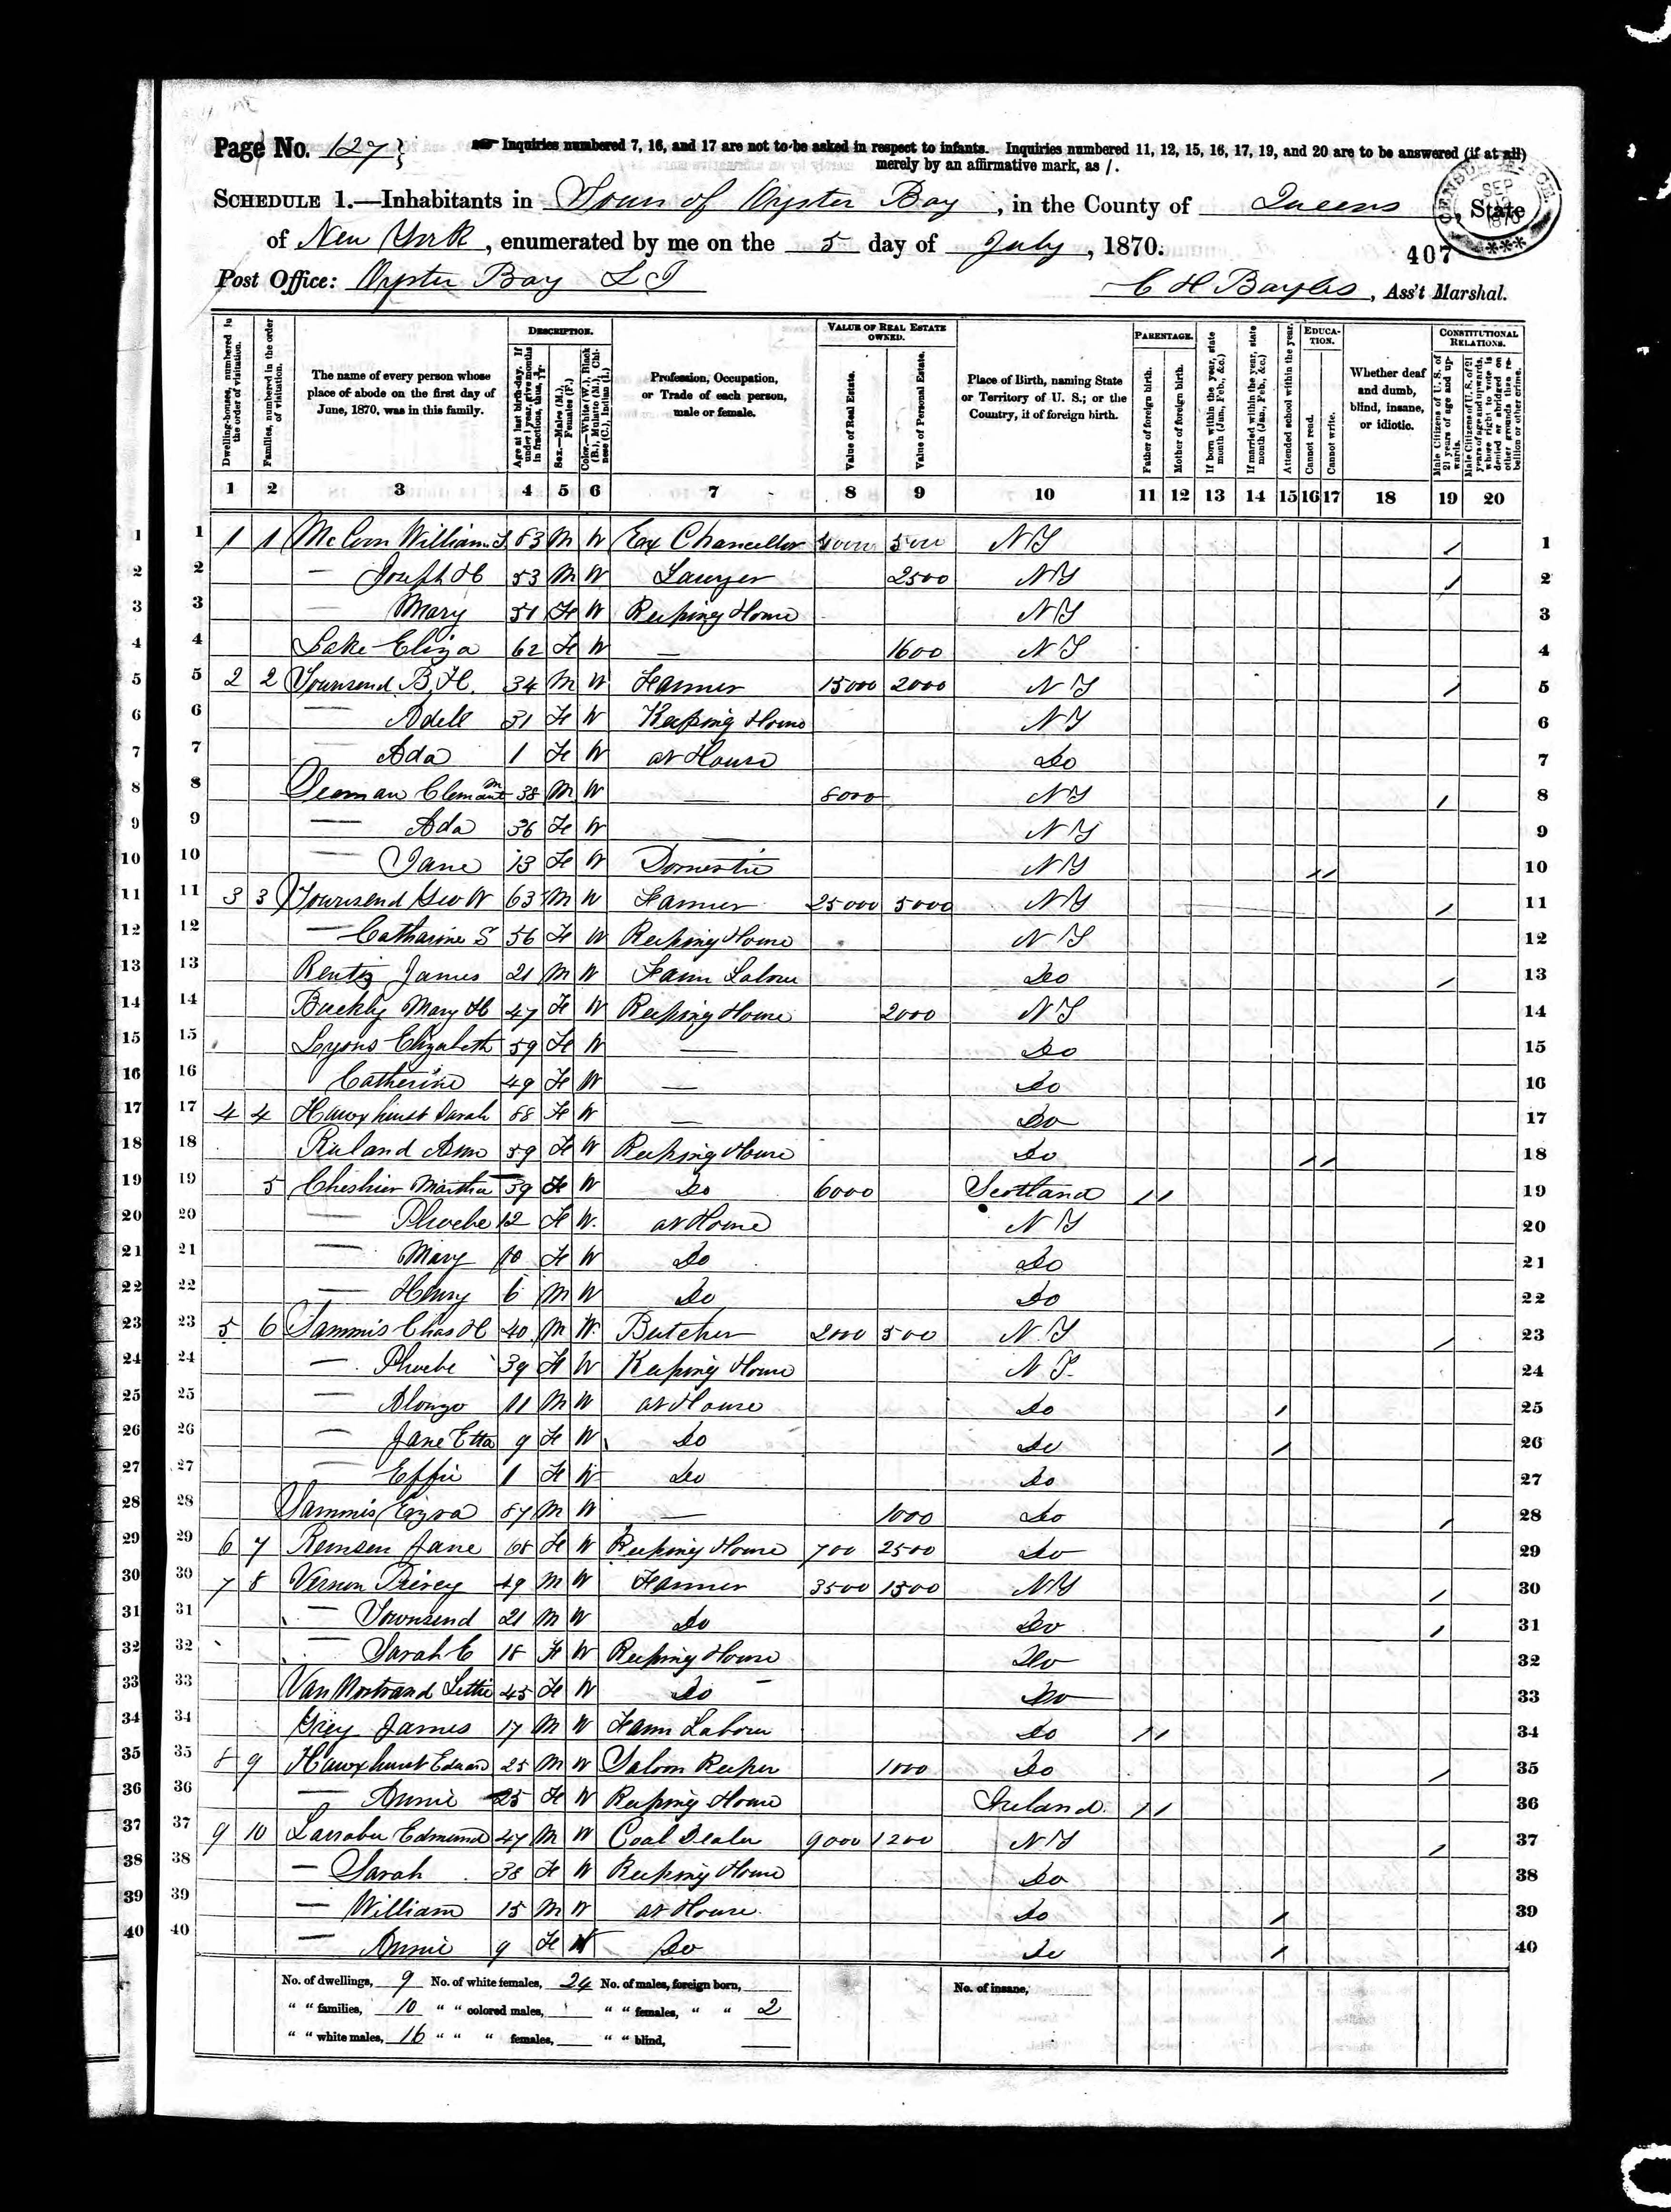 Page No. 127
Inquiries numbered 7, 16, and 17 are not to be asked in respect to infants. Inquiries numbered 11, 12, 15, 16, 17, 19, and 20 are to be answered (if at all)
merely by an affirmative mark, as /.
SCHEDULE 1.—Inhabitants in Town of Oyster Bay, in the County of Queens, State
of New York, enumerated by me on the 5 day of July, 1870.
SEP 1870
407
Post Office: Oyster Bay L I
C H Bayles, Ass't Marshal.
Dwelling-houses, numbered in the order of visitation.
Families, numbered in the order of visitation.
The name of every person whose place of abode on the first day of June, 1870, was in this family.
DESCRIPTION.
Age at last birth-day. If under 1 year, give months in fractions, thus,
Sex.—Males (M.), Females (F.)
Color.—White (W.), Black (B.), Mulatto (M.), Chinese (C.), Indian (I.)
Profession, Occupation, or Trade of each person, male or female.
VALUE OF REAL ESTATE OWNED.
Value of Real Estate.
Value of Personal Estate.
Place of Birth, naming State or Territory of U. S.; or the Country, if of foreign birth.
PARENTAGE.
Father of foreign birth.
Mother of foreign birth.
If born within the year, state month (Jan., Feb., &c.)
If married within the year, state month (Jan., Feb., &c.)
Attended school within the year.
EDUCATION.
Cannot read.
Cannot write.
Whether deaf and dumb, blind, insane, or idiotic.
CONSTITUTIONAL RELATIONS.
Male Citizens of U. S. of 21 years of age and upwards.
Male Citizens of U. S. of 21 years of age and upwards, whose right to vote is denied or abridged on other grounds than rebellion or other crime.
1 2 3 4 5 6 7 8 9 10 11 12 13 14 15 16 17 18 19 20
1 1 1 1 McCoun William T 83 M W Ex Chancellor N Y / 1
2 2 — Joseph H 53 M W Lawyer 2500 N Y / 2
3 3 — Mary 51 Fe W Keeping House N Y 3
4 4 Lake Eliza 62 Fe W — 1600 N Y 4
5 5 2 2 Townsend B. H. 34 M W Farmer 15000 2000 N Y / 5
6 6 — Adell 31 Fe W Keeping House N Y 6
7 7 — Ada 1 Fe W at House Do 7
8 8 Seaman Clement m 38 M W — 8000 N Y / 8
9 9 — Ada 36 Fe W — N Y 9
10 10 — Jane 13 Fe W Domestic N Y / / 10
11 11 3 3 Townsend Geo W 63 M W Farmer 25000 5000 N Y / 11
12 12 — Catharine S 56 Fe W Keeping House N Y 12
13 13 James 21 M W Farm Labour Do / 13
14 14 Buckly Mary H 47 Fe W Keeping House 2000 N Y 14
15 15 Lyons Elizabeth 59 Fe W — Do 15
16 16 Catherine 49 Fe W — Do 16
17 17 4 4 Hawxhurst Sarah 88 Fe W — Do 17
18 18 Ruland Ann 59 Fe W Keeping House Do / / 18
19 19 5 Cheshier Martha 39 Fe W Do 6000 Scotland / / 19
20 20 — Phoebe 12 Fe W. at Home N Y 20
21 21 — Mary 10 Fe W Do Do 21
22 22 — Henry 6 M W Do Do 22
23 23 5 6 Sammis Chas H 40 M W. Butcher 2000 500 N. Y / 23
24 24 — Phoebe 39 Fe W Keeping House N Y 24
25 25 — Alonzo 11 M W at House Do / 25
26 26 — Jane Etta 9 Fe W Do Do / 26
27 27 — Effie 1 Fe W Do Do 27
28 28 Sammis Ezra 87 M W — 1000 Do / 28
29 29 6 7 Remsen Jane 68 Fe W Keeping House 700 2500 Do 29
30 30 7 8 Vernon 49 M W Farmer 3500 1500 N Y / 30
31 31 — Townsend 21 M W Do Do / 31
32 32 — Sarah E 18 Fe W Keeping House Do 32
33 33 Van Nostrand Lettie 45 Fe W Do Do 33
34 34 Grey James 17 M W Farm Labour Do / / 34
35 35 8 9 Hawxhurst Edward 25 M W Saloon Keeper 1000 Do / 35
36 36 — Annie 25 Fe W Keeping House Ireland / / 36
37 37 9 10 Larrabee Edmund 47 M W Coal Dealer 9000 1200 N Y / 37
38 38 — Sarah 38 Fe W Keeping House Do 38
39 39 — William 15 M W at House Do / 39
40 40 — Annie 9 Fe W Do Do / 40
No. of dwellings, 9 No. of white females, 24 No. of males, foreign born, No. of insane,
" " families, 10 " " colored males, " " females, " " 2
" " white males, 16 " " " females, " " blind,